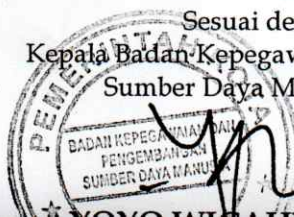 Sesuai de
Kepala Badan Kepegaw
Sumber Daya M
PEMERINTAH KOTA
BADAN KEPEGAWAIAN DAN
PENGEMBANGAN
SUMBER DAYA MANUSIA